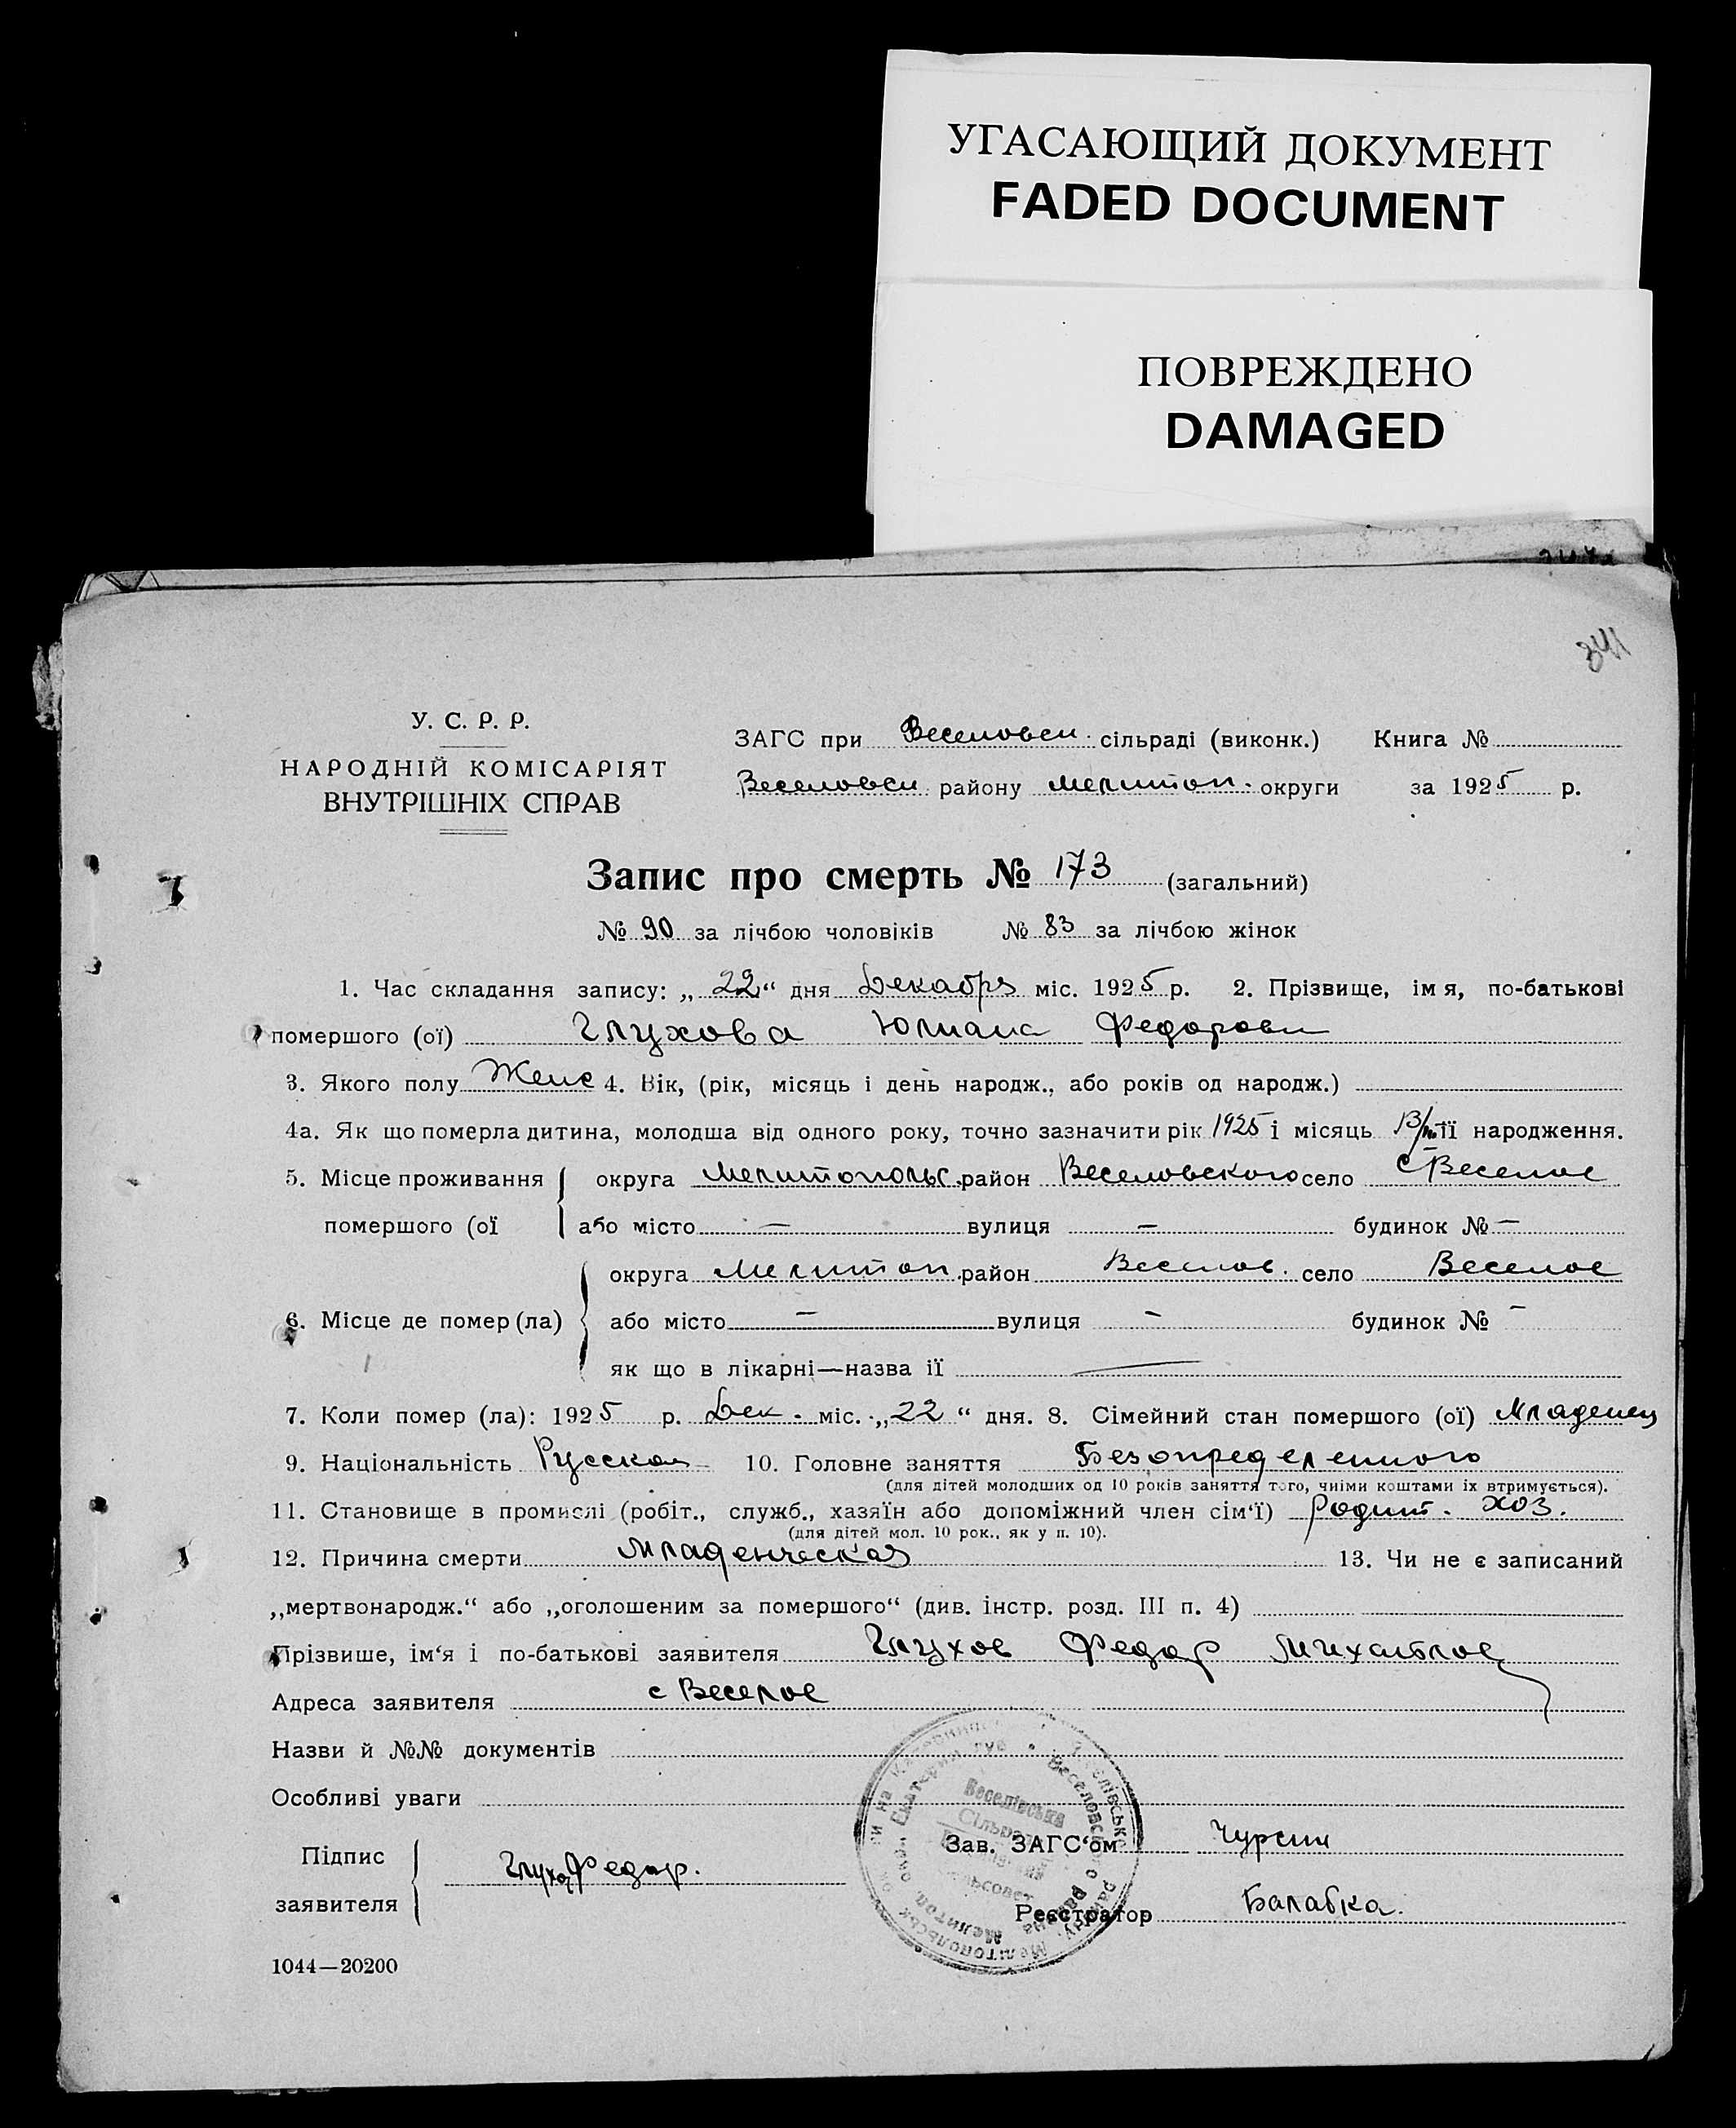 УГАСАЮЩИЙ ДОКУМЕНТ
FADED DOCUMENT
ПОВРЕЖДЕНО
DAMAGED
341
У. С. Р. Р.
НАРОДНІЙ КОМІСАРІЯТ
ВНУТРІШНІХ СПРАВ
ЗАГС при Веселовск. сільраді (виконк.) Книга №
Веселовск. району Мелитоп. округи за 1925 р.
Запис про смерть № 173 (загальний)
№ 90 за лічбою чоловіків № 83 за лічбою жінок
1. Час складання запису: „ 22 “ дня Декабря міс. 1925 р. 2. Прізвище, імя, по-батькові
помершого (ої) Глухова Юлиана Федоровн
3. Якого полу Женс 4. Вік, (рік, місяць і день народж., або років од народж.)
4а. Як що померла дитина, молодша від одного року, точно зазначити рік 1925 і місяць її народження.
5. Місце проживання помершого (ої
округа Мелитопольс. район Веселовского село с Веселое
або місто — вулиця — будинок № —
6. Місце де помер (ла)
округа Мелитоп. район Веселов. село Веселое
або місто — вулиця — будинок № —
як що в лікарні—назва ії —
7. Коли помер (ла): 1925 р. Дек. міс. „ 22 “ дня. 8. Сімейний стан помершого (ої) Младенец
9. Національність Русская 10. Головне заняття Безопределенного
(для дітей молодших од 10 років заняття того, чиїми коштами їх втримується).
11. Становище в промислі (робіт., служб., хазяїн або допоміжний член сім‘ї) Родит. хоз.
(для дітей мол. 10 рок., як у п. 10).
12. Причина смерти Младенческая 13. Чи не є записаний
„мертвонародж.“ або „оголошеним за помершого“ (див. інстр. розд. III п. 4)
Прізвише, ім‘я і по-батькові заявителя Глухов Федор Михайлов
Адреса заявителя с Веселое
Назви й №№ документів
Особливі уваги
Підпис заявителя Глухов Федор.
Веселівська
Сільрада
Зав. ЗАГС‘ом
Реєстратор Балабка.
1044—20200